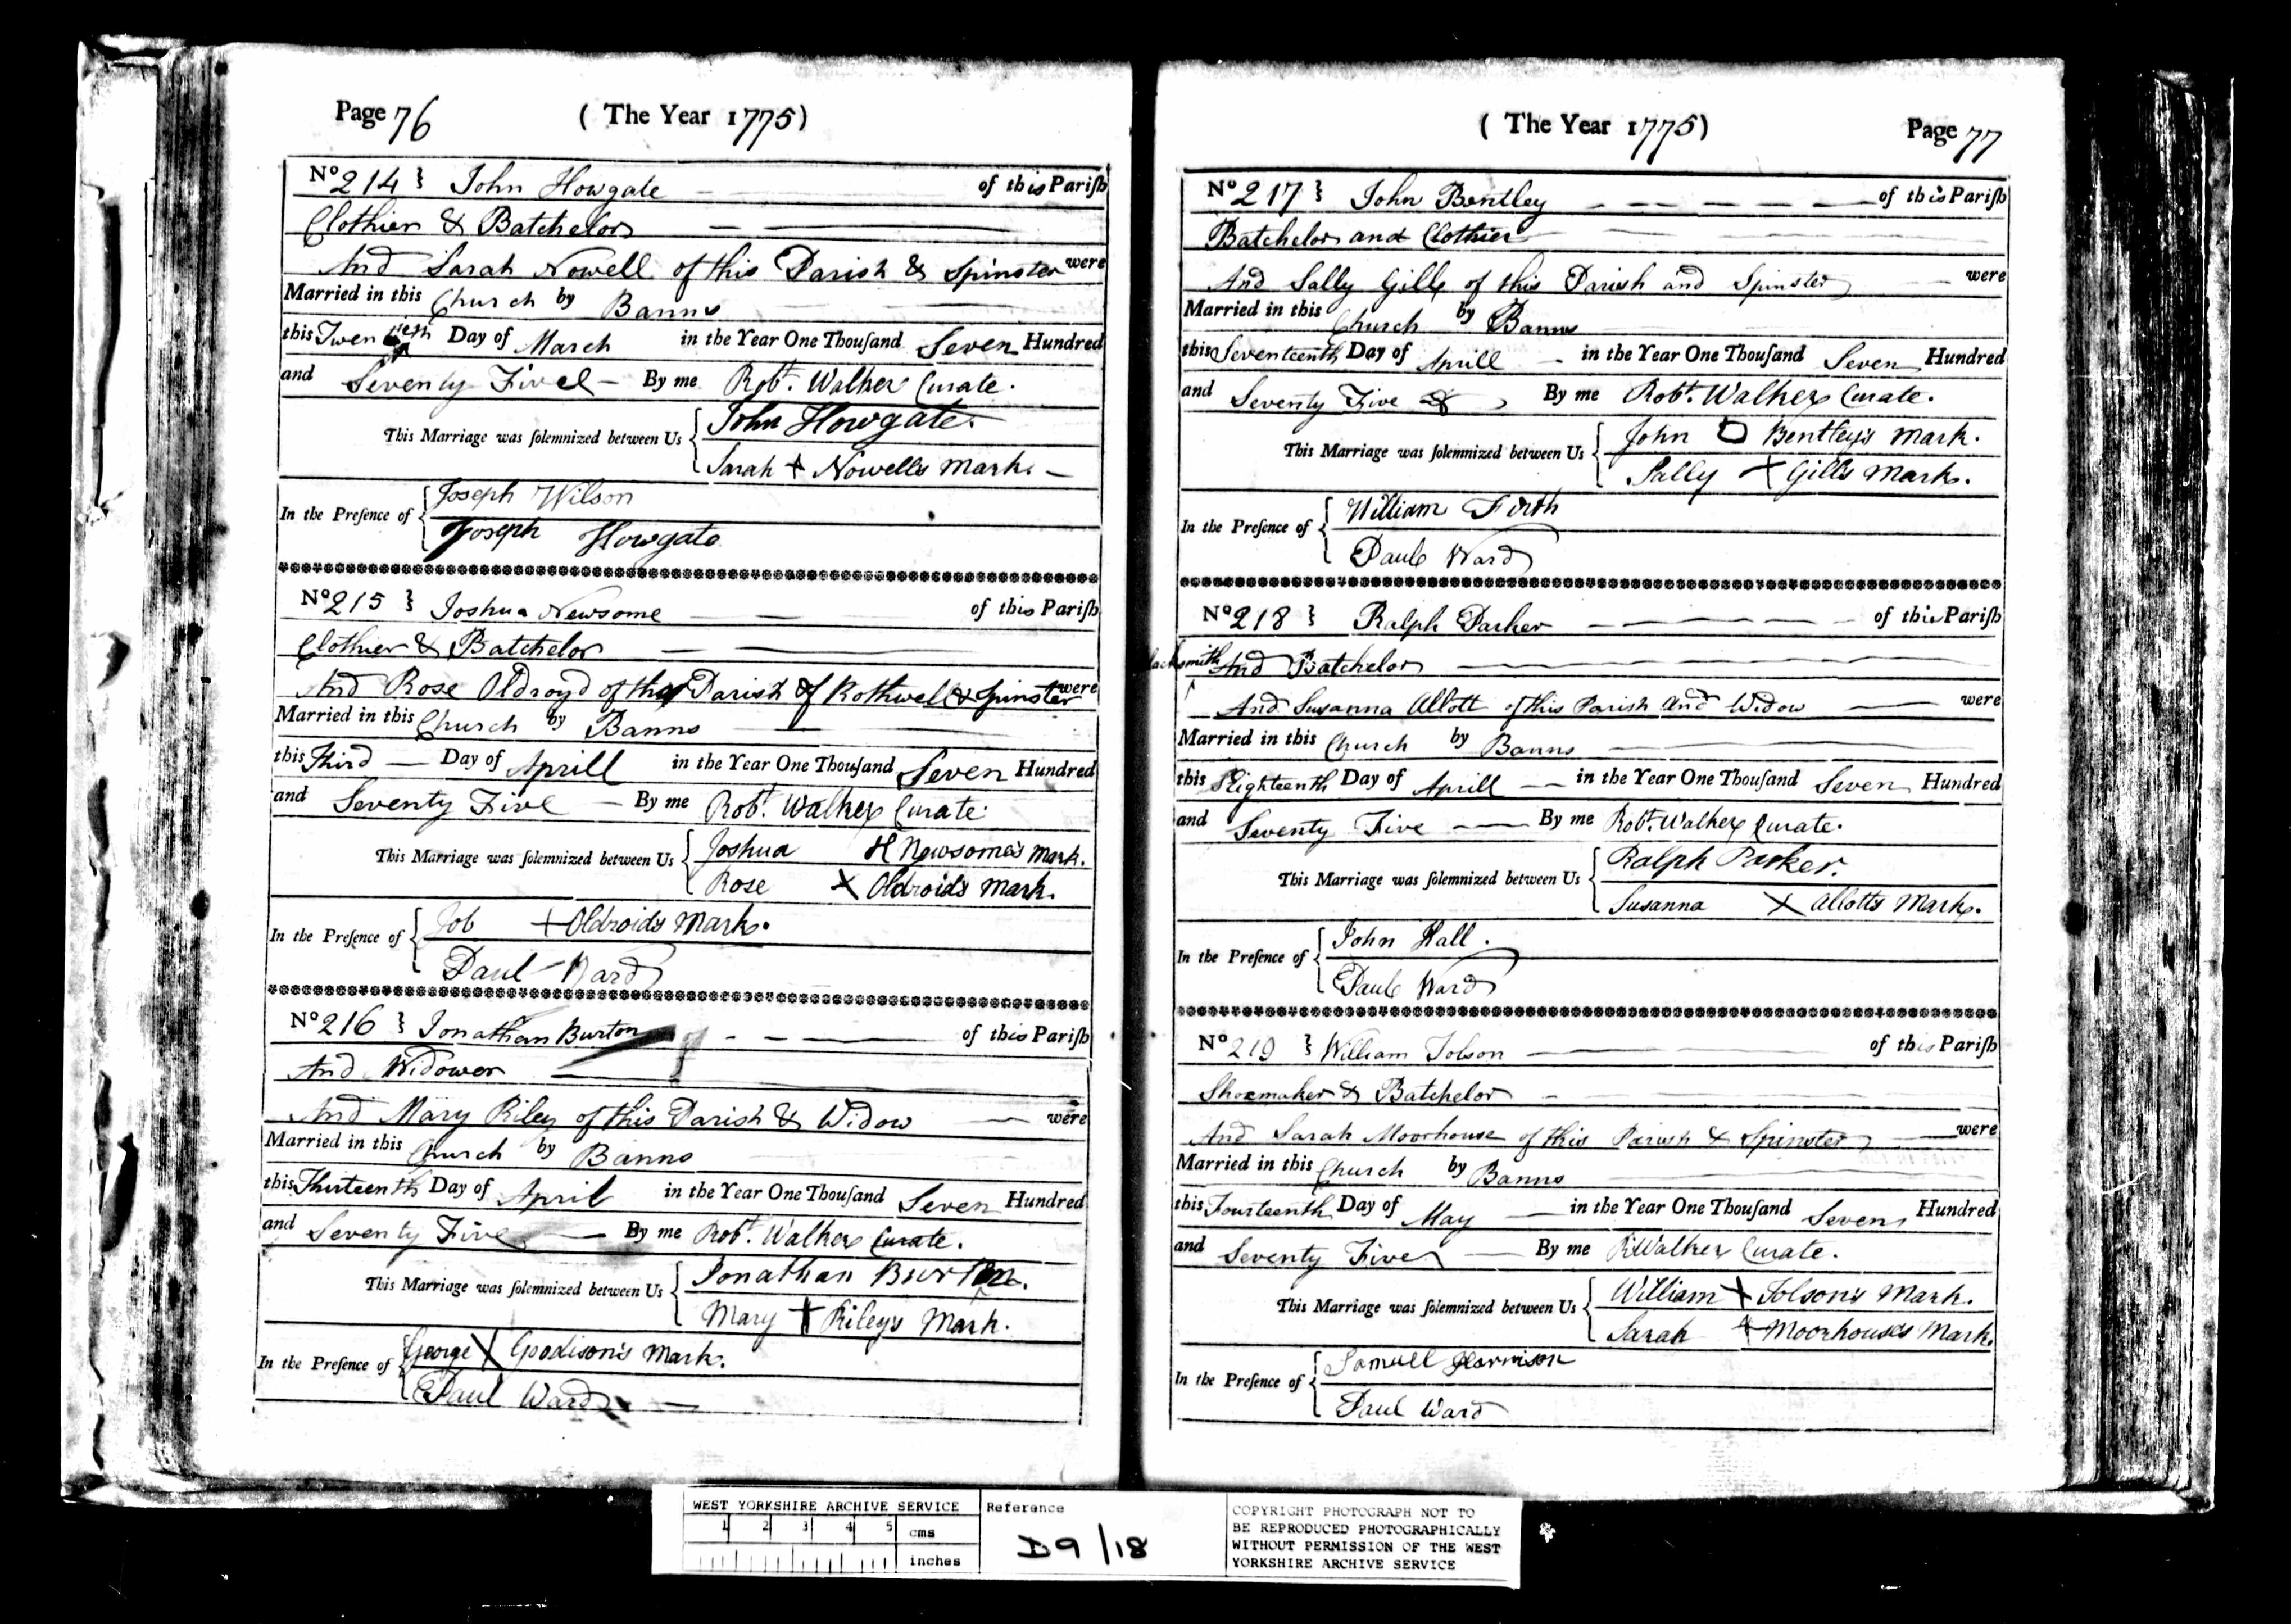 Page 76 ( The Year 1775)
No 214 } John Howgate of this Parish
Clothier & Batchelor
And Sarah Nowell of this Parish & Spinster were
Married in this Church by Banns
this Twentieth Day of March in the Year One Thousand Seven Hundred
and Seventy Five By me Robt. Walker Curate.
This Marriage was solemnized between Us { John Howgate.
Sarah + Nowells Mark.
In the Presence of { Joseph Wilson
Joseph Howgate
No 215 } Joshua Newsome of this Parish
Clothier & Batchelor
And Rose Oldroyd of the Parish of Rothwell & Spinster were
Married in this Church by Banns
this Third Day of Aprill in the Year One Thousand Seven Hundred
and Seventy Five By me Robt. Walker Curate.
This Marriage was solemnized between Us { Joshua H Newsome's Mark.
Rose X Oldroid's Mark.
In the Presence of { Job + Oldroid's Mark.
Paul Ward
No 216 } Jonathan Burton of this Parish
And Widower
And Mary Riley of this Parish & Widow were
Married in this Church by Banns
this Thirteenth Day of April in the Year One Thousand Seven Hundred
and Seventy Five By me Robt. Walker Curate.
This Marriage was solemnized between Us { Jonathan Burton.
Mary + Riley's Mark.
In the Presence of { George X Goodison's Mark.
Paul Ward
( The Year 1775) Page 77
No 217 } John Bentley of this Parish
Batchelor and Clothier
And Sally Gill of this Parish and Spinster were
Married in this Church by Banns
this Seventeenth Day of Aprill in the Year One Thousand Seven Hundred
and Seventy Five By me Robt. Walker Curate.
This Marriage was solemnized between Us { John O Bentley's Mark.
Sally X Gill's Mark.
In the Presence of { William Firth
Paul Ward
No 218 } Ralph Parker of this Parish
lacksmith And Batchelor
And Susanna Allott of this Parish and Widow were
Married in this Church by Banns
this Eighteenth Day of Aprill in the Year One Thousand Seven Hundred
and Seventy Five By me Robt. Walker Curate.
This Marriage was solemnized between Us { Ralph Parker.
Susanna X Allott's Mark.
In the Presence of { John Hall.
Paul Ward
No 219 } William Tolson of this Parish
Shoemaker & Batchelor
And Sarah Moorhouse of this Parish & Spinster were
Married in this Church by Banns
this Fourteenth Day of May in the Year One Thousand Seven Hundred
and Seventy Five By me R Walker Curate.
This Marriage was solemnized between Us { William X Tolson's Mark.
Sarah + Moorhouse's Mark.
In the Presence of { Samuell Harrison
Paul Ward
WEST YORKSHIRE ARCHIVE SERVICE
1 2 3 4 5 cms
inches
Reference
D9/18
COPYRIGHT PHOTOGRAPH NOT TO
BE REPRODUCED PHOTOGRAPHICALLY
WITHOUT PERMISSION OF THE WEST
YORKSHIRE ARCHIVE SERVICE